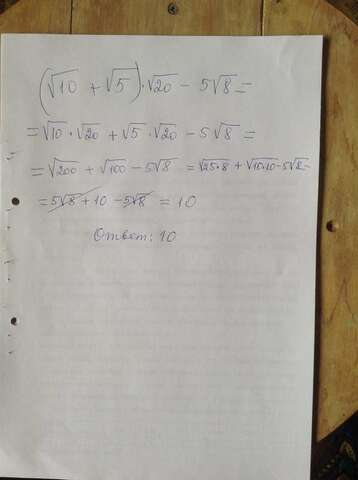 (√10 + √5)·√20 − 5√8 =
= √10 · √20 + √5 · √20 − 5√8 =
= √200 + √100 − 5√8 = √25·8 + √10·10 − 5√8 =
= 5√8 + 10 − 5√8 = 10
Ответ: 10